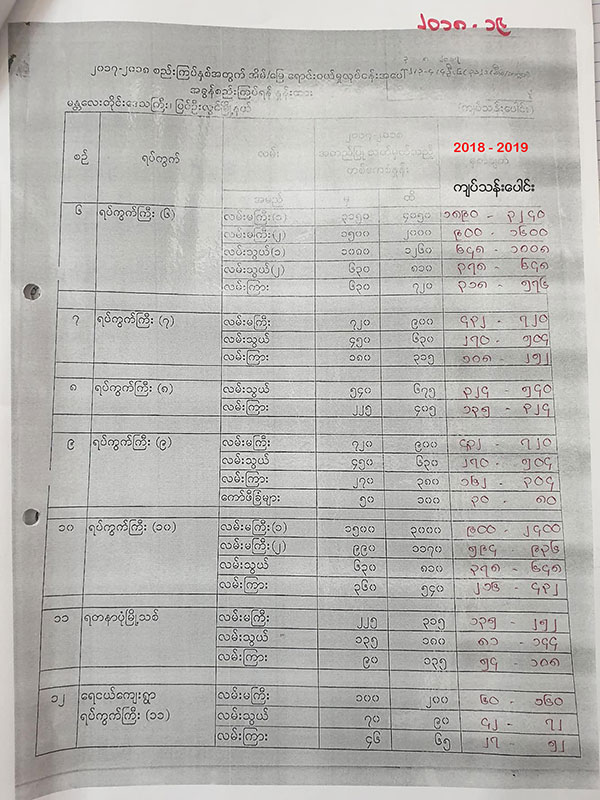 ၂၀၁၈-၁၉
၂၀၁၇-၂၀၁၈ စည်းကြပ်နှစ်အတွက် အိမ်/မြေ ရောင်းဝယ်မှုလုပ်ငန်းအပေါ်
အခွန်စည်းကြပ်ရန် နှုန်းထား
မန္တလေးတိုင်းဒေသကြီး၊ ပြင်ဦးလွင်မြို့နယ် (ကျပ်သန်းပေါင်း)
၂၀၁၇-၂၀၁၈
2018 - 2019
စဉ် ရပ်ကွက် လမ်း
ကျပ်သန်းပေါင်း
အမည် မှ ထိ
၆ ရပ်ကွက်ကြီး (၆) လမ်းမကြီး(၁) ၃၁၅၀ ၄၀၅၀ ၁၈၉၀ - ၃၂၄၀
လမ်းမကြီး(၂) ၁၅၀၀ ၂၀၀၀ ၉၀၀ - ၁၆၀၀
လမ်းသွယ်(၁) ၁၀၈၀ ၁၂၆၀ ၆၄၈ - ၁၀၀၈
လမ်းသွယ်(၂) ၆၃၀ ၈၁၀ ၃၇၈ - ၆၄၈
လမ်းကြား ၆၃၀ ၇၂၀ ၃၁၈ - ၅၇၆
၇ ရပ်ကွက်ကြီး (၇) လမ်းမကြီး ၇၂၀ ၉၀၀ ၄၃၂ - ၇၂၀
လမ်းသွယ် ၄၅၀ ၆၃၀ ၂၇၀ - ၅၀၄
လမ်းကြား ၁၈၀ ၃၁၅ ၁၀၈ - ၂၅၂
၈ ရပ်ကွက်ကြီး (၈) လမ်းသွယ် ၅၄၀ ၆၇၅ ၃၂၄ - ၅၄၀
လမ်းကြား ၂၂၅ ၄၀၅ ၁၃၅ - ၃၂၄
၉ ရပ်ကွက်ကြီး (၉) လမ်းမကြီး ၇၂၀ ၉၀၀ ၄၃၂ - ၇၂၀
လမ်းသွယ် ၄၅၀ ၆၃၀ ၂၇၀ - ၅၀၄
လမ်းကြား ၂၇၀ ၃၈၀ ၁၆၂ - ၃၀၄
ကော်ဖီခြံများ ၅၀ ၁၀၀ ၃၀ - ၈၀
၁၀ ရပ်ကွက်ကြီး (၁၀) လမ်းမကြီး(၁) ၁၅၀၀ ၃၀၀၀ ၉၀၀ - ၂၄၀၀
လမ်းမကြီး(၂) ၉၉၀ ၁၁၇၀ ၅၉၄ - ၉၃၆
လမ်းသွယ် ၆၃၀ ၈၁၀ ၃၇၈ - ၆၄၈
လမ်းကြား ၃၆၀ ၅၄၀ ၂၁၆ - ၄၃၂
၁၁ ရတနာပုံမြို့သစ် လမ်းမကြီး ၂၂၅ ၃၁၅ ၁၃၅ - ၂၅၂
လမ်းသွယ် ၁၃၅ ၁၈၀ ၈၁ - ၁၄၄
လမ်းကြား ၉၀ ၁၃၅ ၅၄ - ၁၀၈
၁၂ ရေငယ်ကျေးရွာ လမ်းမကြီး ၁၀၀ ၂၀၀ ၆၀ - ၁၆၀
ရပ်ကွက်ကြီး (၁၁) လမ်းသွယ် ၇၀ ၉၀ ၄၂ - ၇၂
လမ်းကြား ၄၆ ၆၅ ၂၇ - ၅၂